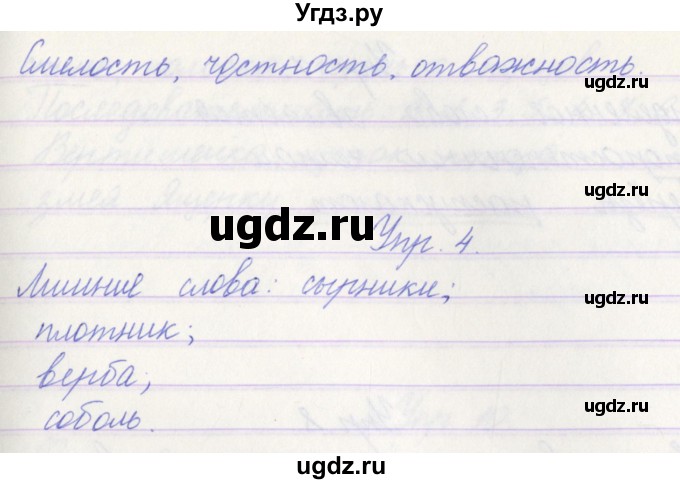 Угдз.ру
Смелость, честность, отважность.
ugdz.ru
ugdz.ru
ugdz.ru
ugdz.ru Упр. 4.
Лишние слова: сырники;
ugdz.ru
плотник;
верба;
соболь.
ugdz.ru
ugdz.ru